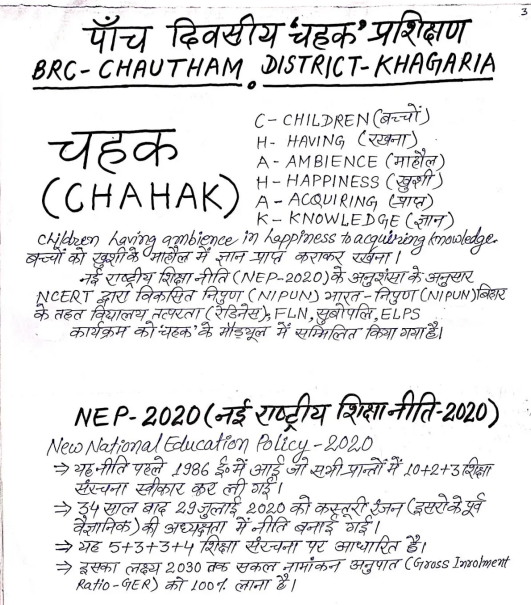 3
पाँच दिवसीय 'चहक' प्रशिक्षण
BRC-CHAUTHAM, DISTRICT-KHAGARIA
चहक
(CHAHAK)
C- CHILDREN (बच्चों)
H- HAVING (रखना)
A- AMBIENCE (माहौल)
H- HAPPINESS (खुशी)
A- ACQUIRING (प्राप्त)
K- KNOWLEDGE (ज्ञान)
Children having ambience in happiness to acquiring knowledge.
बच्चों को खुशी के माहौल में ज्ञान प्राप्त कराकर रखना।
नई राष्ट्रीय शिक्षा नीति (NEP-2020) के अनुशंसा के अनुसार
NCERT द्वारा विकसित निपुण (NIPUN) भारत-निपुण (NIPUN) बिहार
के तहत विद्यालय तत्परता (रेडिनेस), FLN, सुबोपलि, ELPS
कार्यक्रम को 'चहक' के मौड्यूल में सम्मिलित किया गया है।
NEP-2020 (नई राष्ट्रीय शिक्षा नीति-2020)
New National Education Policy-2020
⇒ यह नीति पहले 1986 ई० में आई जो सभी प्रान्तों में 10+2+3 शिक्षा
संरचना स्वीकार कर ली गई।
⇒ 34 साल बाद 29 जुलाई 2020 को कस्तूरी रंजन (इसरो के पूर्व
वैज्ञानिक) की अध्यक्षता में नीति बनाई गई।
⇒ यह 5+3+3+4 शिक्षा संरचना पर आधारित है।
⇒ इसका लक्ष्य 2030 तक सकल नामांकन अनुपात (Gross Inrolment
Ratio-GER) को 100% लाना है।